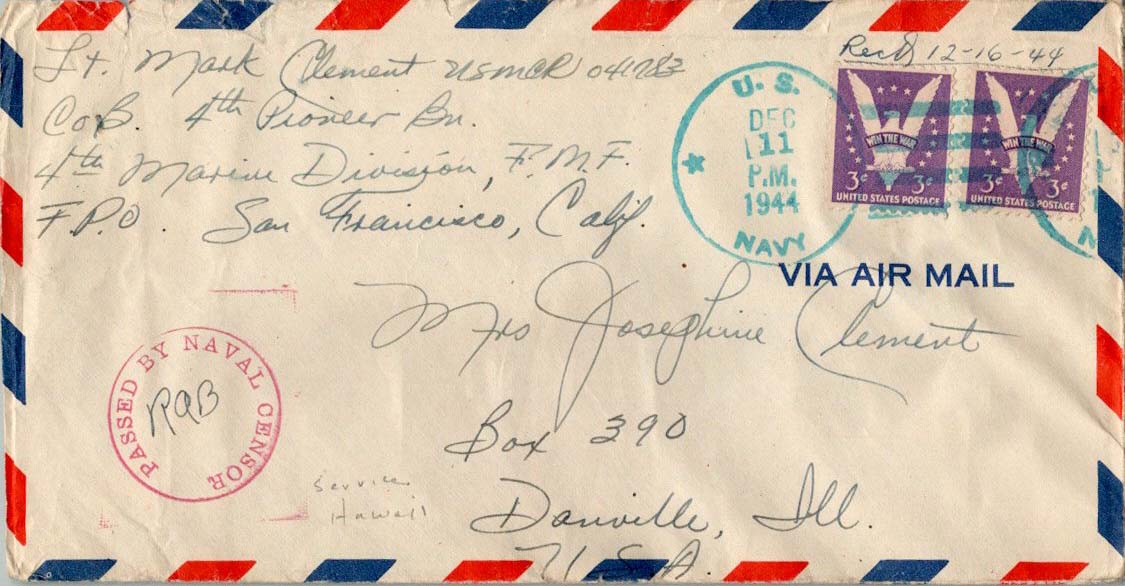 Lt. Mark Clement USMCR 041783
Co B. 4th Pioneer Bn.
4th Marine Division, F.M.F.
F.P.O. San Francisco, Calif.
Rec'd 12-16-44
U. S.
DEC
11
P.M.
1944
NAVY
WIN THE WAR
3¢ 3¢
UNITED STATES POSTAGE
WIN THE WAR
3¢ 3¢
UNITED STATES POSTAGE
VIA AIR MAIL
Mrs Josephine Clement
Box 390
Danville, Ill.
U S A.
PASSED BY NAVAL CENSOR
Service
Hawaii